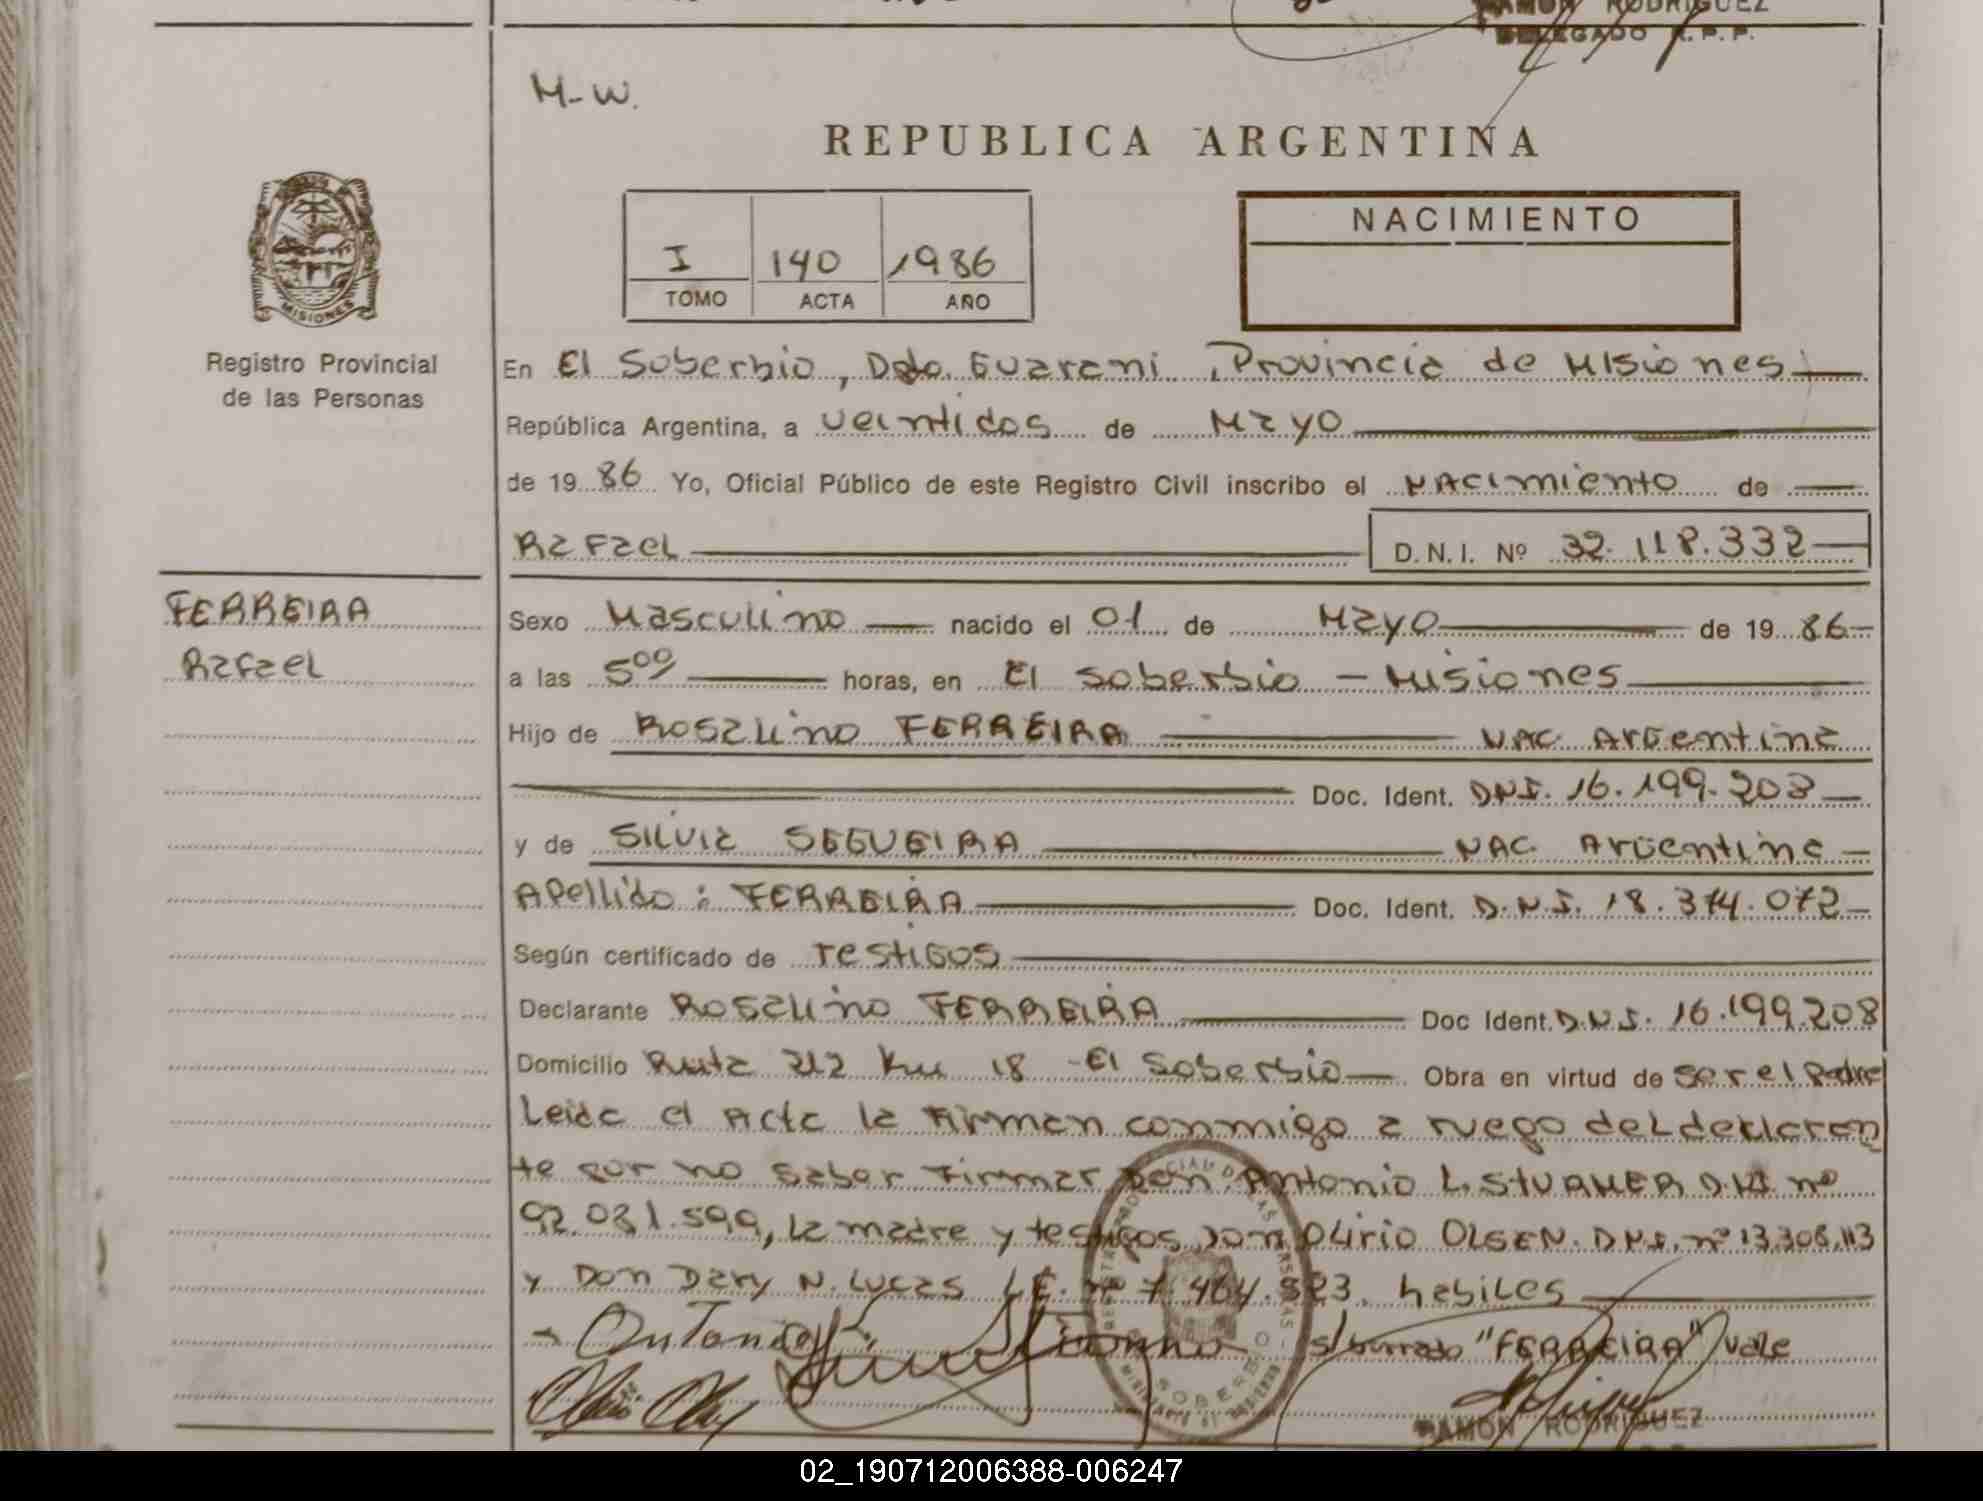 RAMON RODRIGUEZ
DELEGADO R.P.P.
M-W.
REPUBLICA ARGENTINA
I 140 1986
TOMO ACTA AÑO
NACIMIENTO
MISIONES
Registro Provincial
de las Personas
En El Soberbio, Dpto. Guarani, Provincia de Misiones
República Argentina, a veintidos de Mayo
de 19 86 Yo, Oficial Público de este Registro Civil inscribo el nacimiento de
Rafael D.N.I. Nº 32.118.332
FERREIRA
Rafael
Sexo Masculino nacido el 01 de Mayo de 19 86
a las 5⁰⁰ horas, en El Soberbio - Misiones
Hijo de Rosalino FERREIRA NAC. Argentina
Doc. Ident. DNI. 16.199.208
y de Silvia SEGUEIRA NAC. Argentina
Apellido: FERREIRA Doc. Ident. D.N.I. 18.374.072
Según certificado de testigos
Declarante Rosalino FERREIRA Doc Ident. D.N.I. 16.199.208
Domicilio Ruta 212 Km 18 - El Soberbio Obra en virtud de ser el Padre
Leida el Acta la Firman conmigo a ruego del declaran
te por no saber Firmar Don Antonio L. STURMER D.N.I nº
92.031.599, la madre y testigos Don Olirio OLSEN. D.N.I. nº 13.306.113
y Don Dary N. Lucas L.E. nº 7.464.523. habiles
s/borrado "FERREIRA" Vale
SOBERBIO
RAMON RODRIGUEZ
02_190712006388-006247